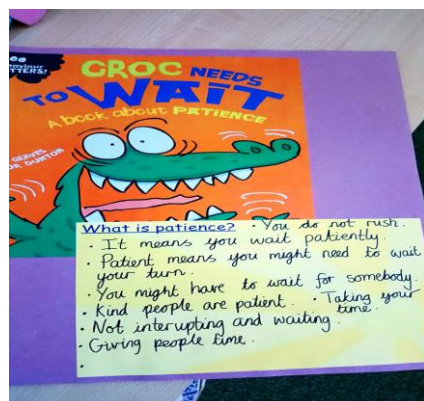 TTERS!
CROC NEEDS
TO WAIT
A book about PATIENCE
GRAVES
OR DUNTON
What is patience? · You do not rush.
· It means you wait patiently.
· Patient means you might need to wait
your turn.
· You might have to wait for somebody.
· Kind people are patient. · Taking your
time.
· Not interupting and waiting.
· Giving people time.
·